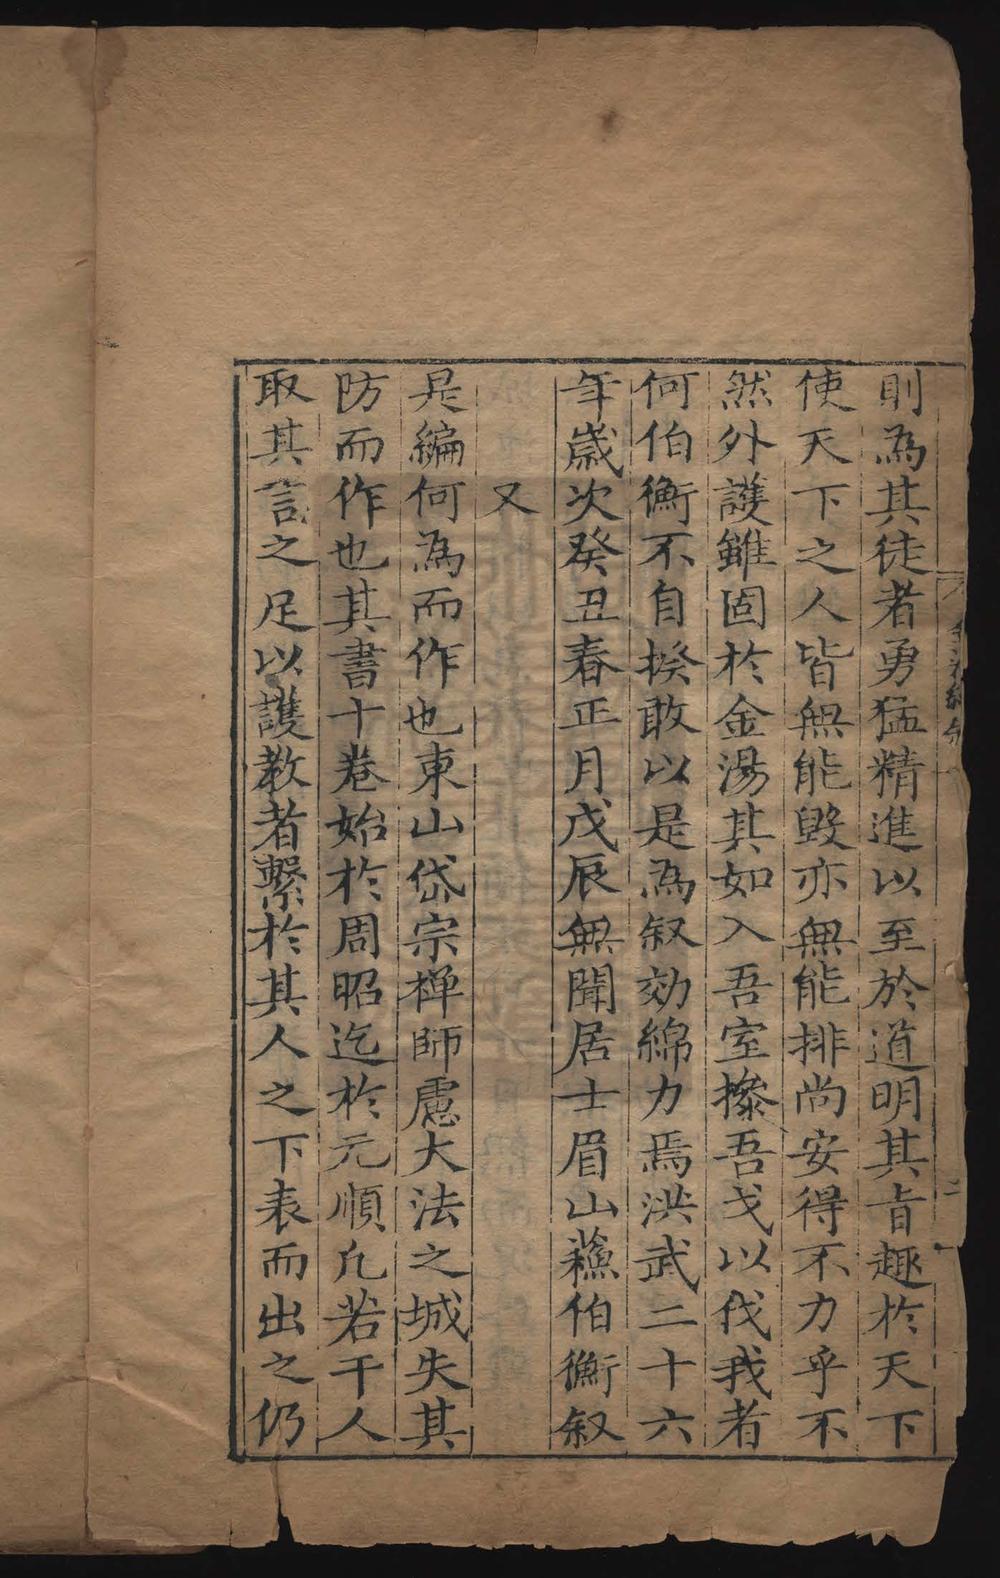 則為其徒者勇猛精進以至於道明其旨趣於天下
使天下之人皆無能毀亦無能排尚安得不力乎不
然外護雖固於金湯其如入吾室摻吾戈以伐我者
何伯衡不自揆敢以是為叙効綿力焉洪武二十六
年歲次癸丑春正月戊辰無聞居士眉山蘓伯衡叙
又
是編何為而作也東山岱宗禪師慮大法之城失其
防而作也其書十卷始於周昭迄於元順凢若干人
取其言之足以護教者繫於其人之下表而出之仍